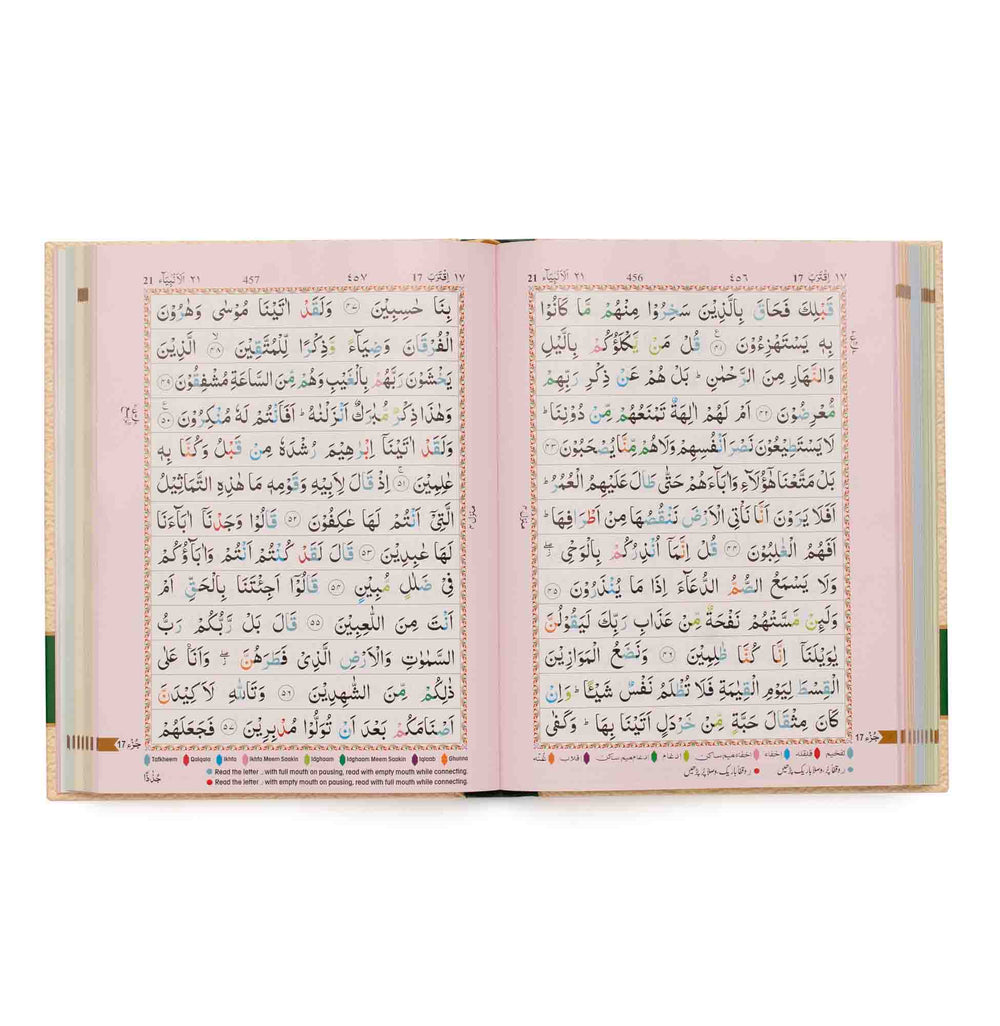 ١٧ اِقْتَرَبَ 17 ٤٥٦ 456 ٢١ اَلْاَنْۢبِيَآء 21
قَبْلِكَ فَحَاقَ بِالَّذِيْنَ سَخِرُوْا مِنْهُمْ مَّا كَانُوْا
بِهٖ يَسْتَهْزِءُوْنَ ﴿٤١﴾ قُلْ مَنْ يَّكْلَؤُكُمْ بِالَّيْلِ
وَالنَّهَارِ مِنَ الرَّحْمٰنِ ؕ بَلْ هُمْ عَنْ ذِكْرِ رَبِّهِمْ
مُّعْرِضُوْنَ ﴿٤٢﴾ اَمْ لَهُمْ اٰلِهَةٌ تَمْنَعُهُمْ مِّنْ دُوْنِنَا ؕ
لَا يَسْتَطِيْعُوْنَ نَصْرَ اَنْفُسِهِمْ وَلَا هُمْ مِّنَّا يُصْحَبُوْنَ ﴿٤٣﴾
بَلْ مَتَّعْنَا هٰٓؤُلَآءِ وَاٰبَآءَهُمْ حَتّٰى طَالَ عَلَيْهِمُ الْعُمُرُ ؕ
اَفَلَا يَرَوْنَ اَنَّا نَاْتِى الْاَرْضَ نَنْقُصُهَا مِنْ اَطْرَافِهَا ؕ
اَفَهُمُ الْغٰلِبُوْنَ ﴿٤٤﴾ قُلْ اِنَّمَاۤ اُنْذِرُكُمْ بِالْوَحْىِ ۖ
وَلَا يَسْمَعُ الصُّمُّ الدُّعَآءَ اِذَا مَا يُنْذَرُوْنَ ﴿٤٥﴾
وَلَئِنْ مَّسَّتْهُمْ نَفْحَةٌ مِّنْ عَذَابِ رَبِّكَ لَيَقُوْلُنَّ
يٰوَيْلَنَاۤ اِنَّا كُنَّا ظٰلِمِيْنَ ﴿٤٦﴾ وَنَضَعُ الْمَوَازِيْنَ
الْقِسْطَ لِيَوْمِ الْقِيٰمَةِ فَلَا تُظْلَمُ نَفْسٌ شَيْـًٔا ؕ وَاِنْ
كَانَ مِثْقَالَ حَبَّةٍ مِّنْ خَرْدَلٍ اَتَيْنَا بِهَا ؕ وَكَفٰى
جُزْء 17
تفخیم قلقلہ اخفاء اخفاء میم ساکن ادغام ادغام میم ساکن اقلاب غنّہ
١٧ اِقْتَرَبَ 17 ٤٥٧ 457 ٢١ اَلْاَنْۢبِيَآء 21
بِنَا حٰسِبِيْنَ ﴿٤٧﴾ وَلَقَدْ اٰتَيْنَا مُوْسٰى وَهٰرُوْنَ
الْفُرْقَانَ وَضِيَآءً وَّذِكْرًا لِّلْمُتَّقِيْنَ ﴿٤٨﴾ الَّذِيْنَ
يَخْشَوْنَ رَبَّهُمْ بِالْغَيْبِ وَهُمْ مِّنَ السَّاعَةِ مُشْفِقُوْنَ ﴿٤٩﴾
وَهٰذَا ذِكْرٌ مُّبٰرَكٌ اَنْزَلْنٰهُ ؕ اَفَاَنْتُمْ لَهٗ مُنْكِرُوْنَ ﴿٥٠﴾
وَلَقَدْ اٰتَيْنَاۤ اِبْرٰهِيْمَ رُشْدَهٗ مِنْ قَبْلُ وَكُنَّا بِهٖ
عٰلِمِيْنَ ﴿٥١﴾ اِذْ قَالَ لِاَبِيْهِ وَقَوْمِهٖ مَا هٰذِهِ التَّمَاثِيْلُ
الَّتِىْۤ اَنْتُمْ لَهَا عٰكِفُوْنَ ﴿٥٢﴾ قَالُوْا وَجَدْنَاۤ اٰبَآءَنَا
لَهَا عٰبِدِيْنَ ﴿٥٣﴾ قَالَ لَقَدْ كُنْتُمْ اَنْتُمْ وَاٰبَآؤُكُمْ
فِىْ ضَلٰلٍ مُّبِيْنٍ ﴿٥٤﴾ قَالُوْۤا اَجِئْتَنَا بِالْحَقِّ اَمْ
اَنْتَ مِنَ اللّٰعِبِيْنَ ﴿٥٥﴾ قَالَ بَلْ رَّبُّكُمْ رَبُّ
السَّمٰوٰتِ وَالْاَرْضِ الَّذِىْ فَطَرَهُنَّ ۖ وَاَنَا عَلٰى
ذٰلِكُمْ مِّنَ الشّٰهِدِيْنَ ﴿٥٦﴾ وَتَاللّٰهِ لَاَكِيْدَنَّ
اَصْنَامَكُمْ بَعْدَ اَنْ تُوَلُّوْا مُدْبِرِيْنَ ﴿٥٧﴾ فَجَعَلَهُمْ
جُزْء 17
Tafkheem Qalqala Ikhfa Ikhfa Meem Saakin Idghaam Idghaam Meem Saakin Iqlaab Ghunna
Read the letter ر with full mouth on pausing, read with empty mouth while connecting.
Read the letter ر with empty mouth on pausing, read with full mouth while connecting.
جُذٰذًا